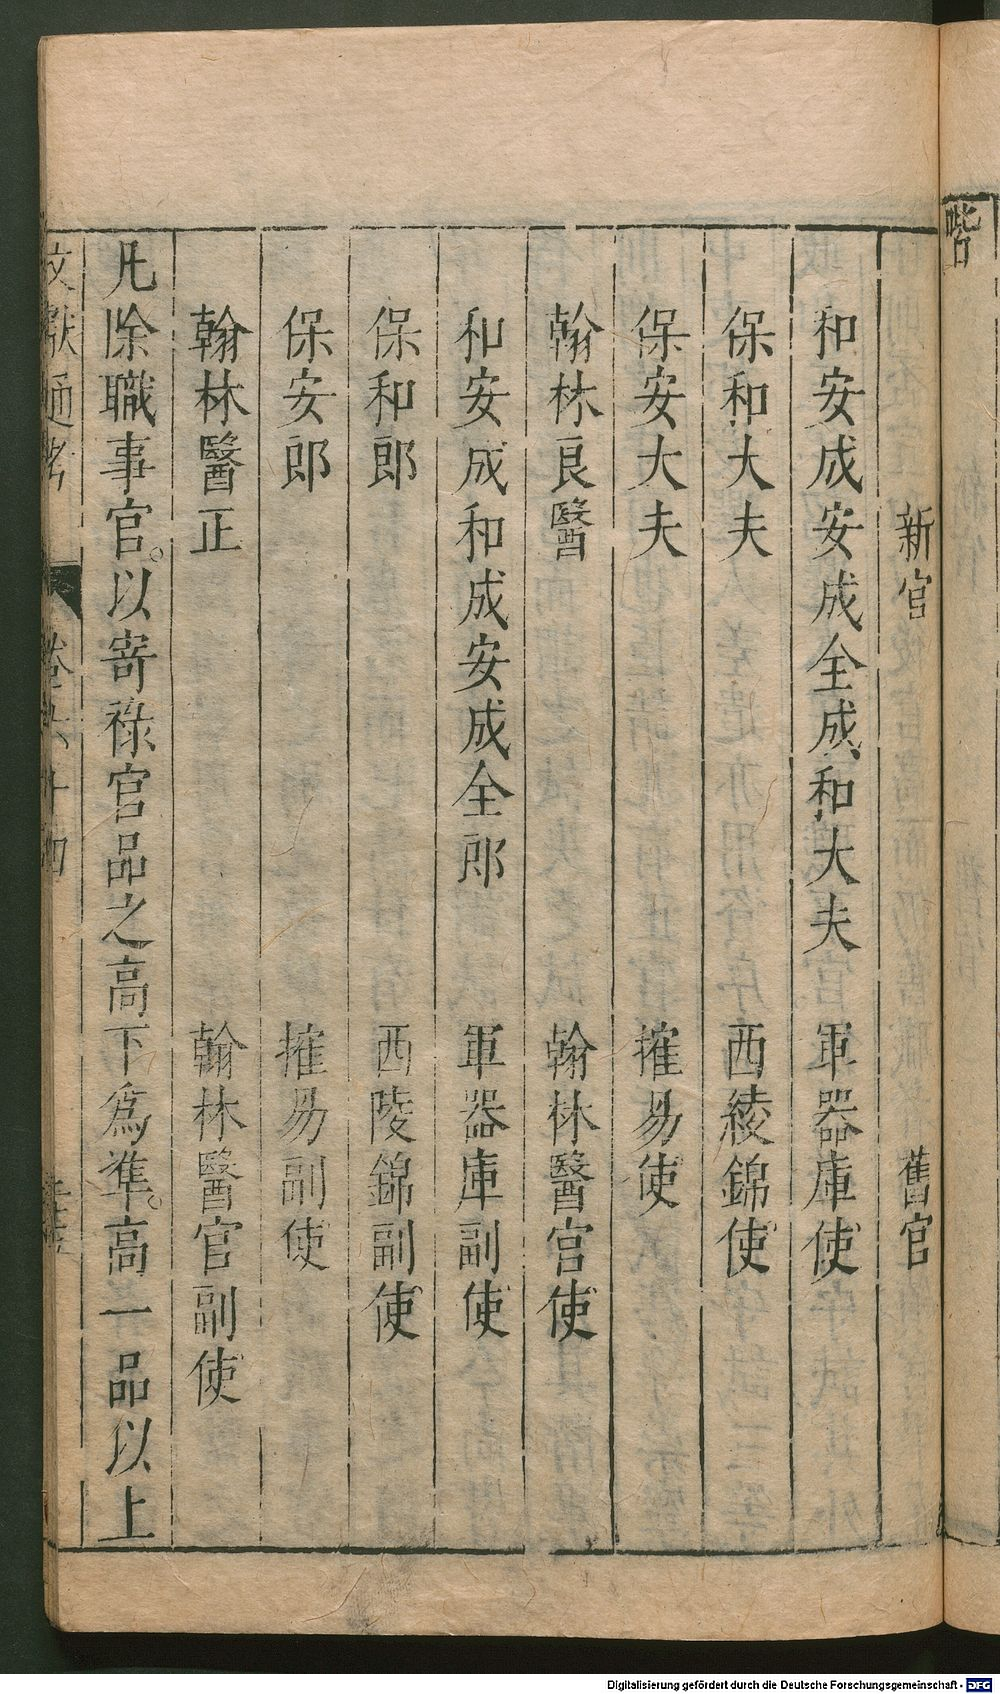 階
新官　舊官
和安成安成全成和大夫　軍器庫使
保和大夫　西綾錦使
保安大夫　搉易使
翰林良醫　翰林醫官使
和安成和成安成全郎　軍器庫副使
保和郎　西陵錦副使
保安郎　搉易副使
翰林醫正　翰林醫官副使
凡除職事官。以寄祿官品之高下為準。高一品以上
文獻通考　卷六十四
Digitalisierung gefördert durch die Deutsche Forschungsgemeinschaft - DFG